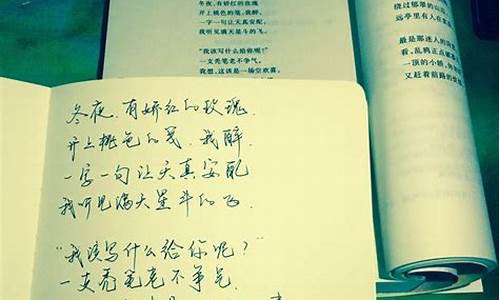 冬夜,有娇红的玫瑰
开上桃色的笺,我醉,
一字一句让天真安配,
我听见满天星斗的飞。
"我该写什么给你呢?"
一支秃笔老不争气,
我想,这该是一场空欢喜。
绕过郁郁的山
远亭里有人在
最是那迷人的
看,乱鸦正点破
一顶的小轿,
又赶着前路的
冬夜,有娇红的玫瑰,
开上桃色的笺,我醉,
一字一句让天真安配
我听见满天星斗的飞.
"我该写什么给你呢?"
一支秃笔老不争气,